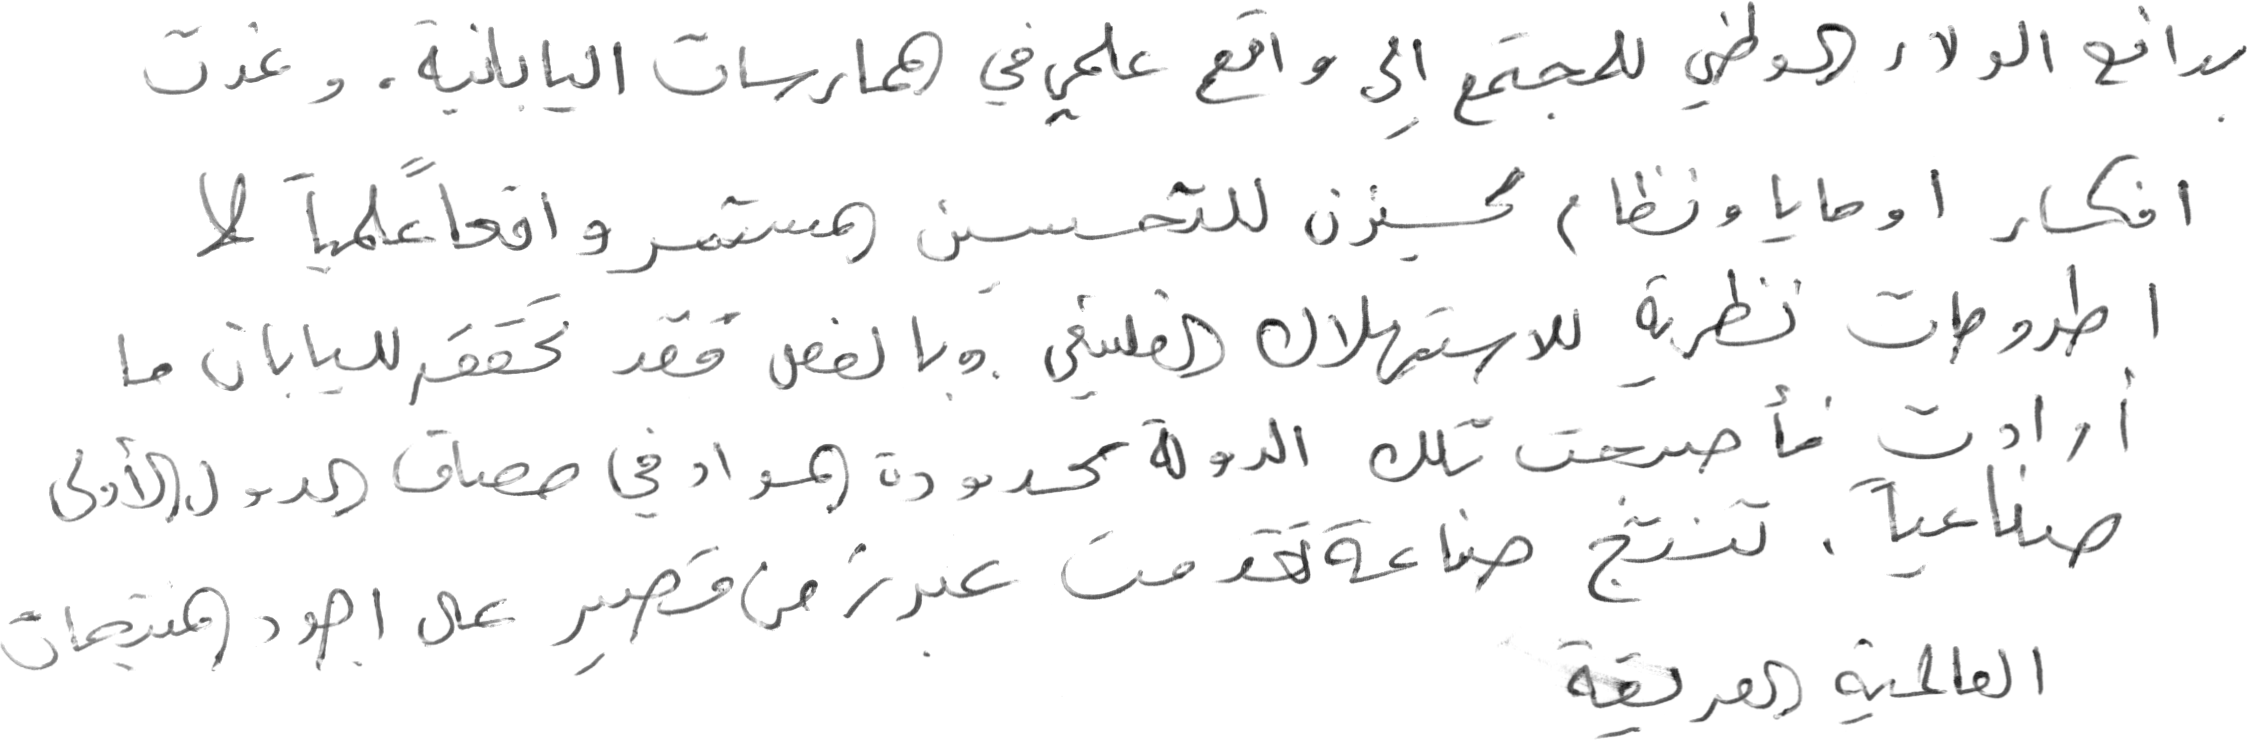 بدافع الولاء الوطني للمجتمع إلى واقع علمي في الممارسات اليابانية. وغدت
افكار اوهايا ونظام كيزن للتحسين المستمر واقعاً علمياً لا
اطروحات نظرية للاستهلاك الفلسفي. وبالفعل فقد تحقق لليابان ما
أرادت فأصبحت تلك الدولة محدودة المواد في مصاف الدول الأولى
صناعياً. تنتج صناعة تقدمت عبر زمن قصير على اجود المنتجات
العالمية العريقة